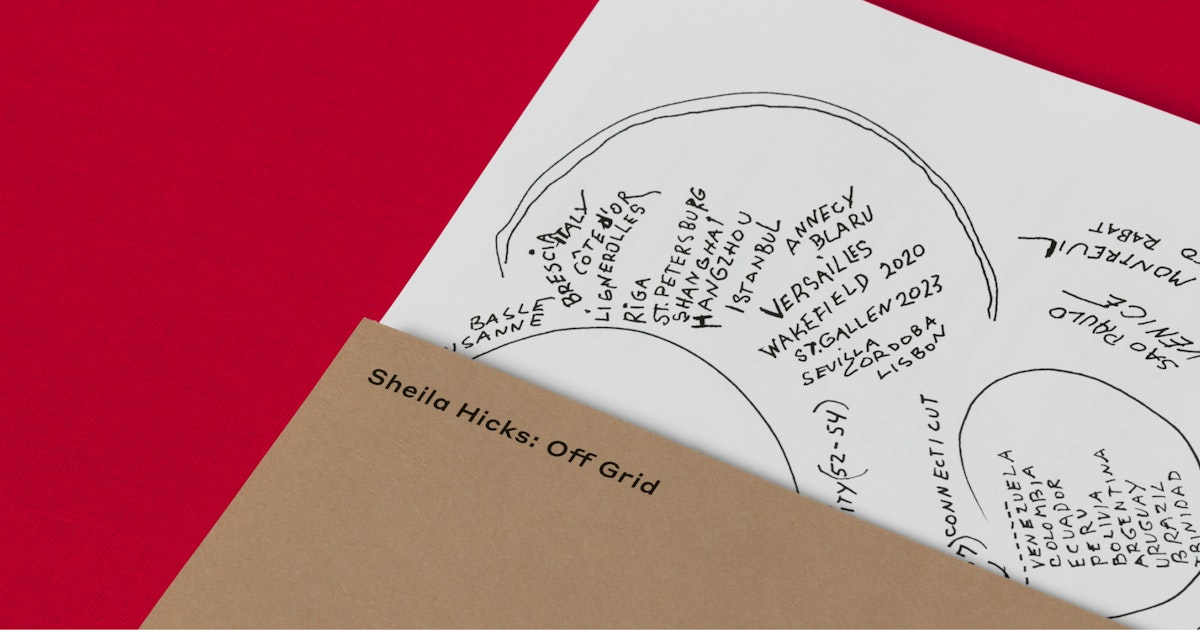 BRESCIA
ITALY
CÔTE D'OR
LIGNEROLLES
RIGA
ST. PETERSBURG
SHANGHAI
HANGZHOU
ISTANBUL
ANNECY
BLARU
VERSAILLES
WAKEFIELD 2020
ST. GALLEN 2023
SEVILLA
CORDOBA
LISBON
BASLE
USANNE
RABAT
MONTREUIL
SAO PAULO
VENICE
ITY (52-54)
CONNECTICUT
VENEZUELA
COLOMBIA
ECUADOR
PERU
BOLIVIA
ARGENTINA
URUGUAY
BRAZIL
TRINIDAD
Sheila Hicks: Off Grid